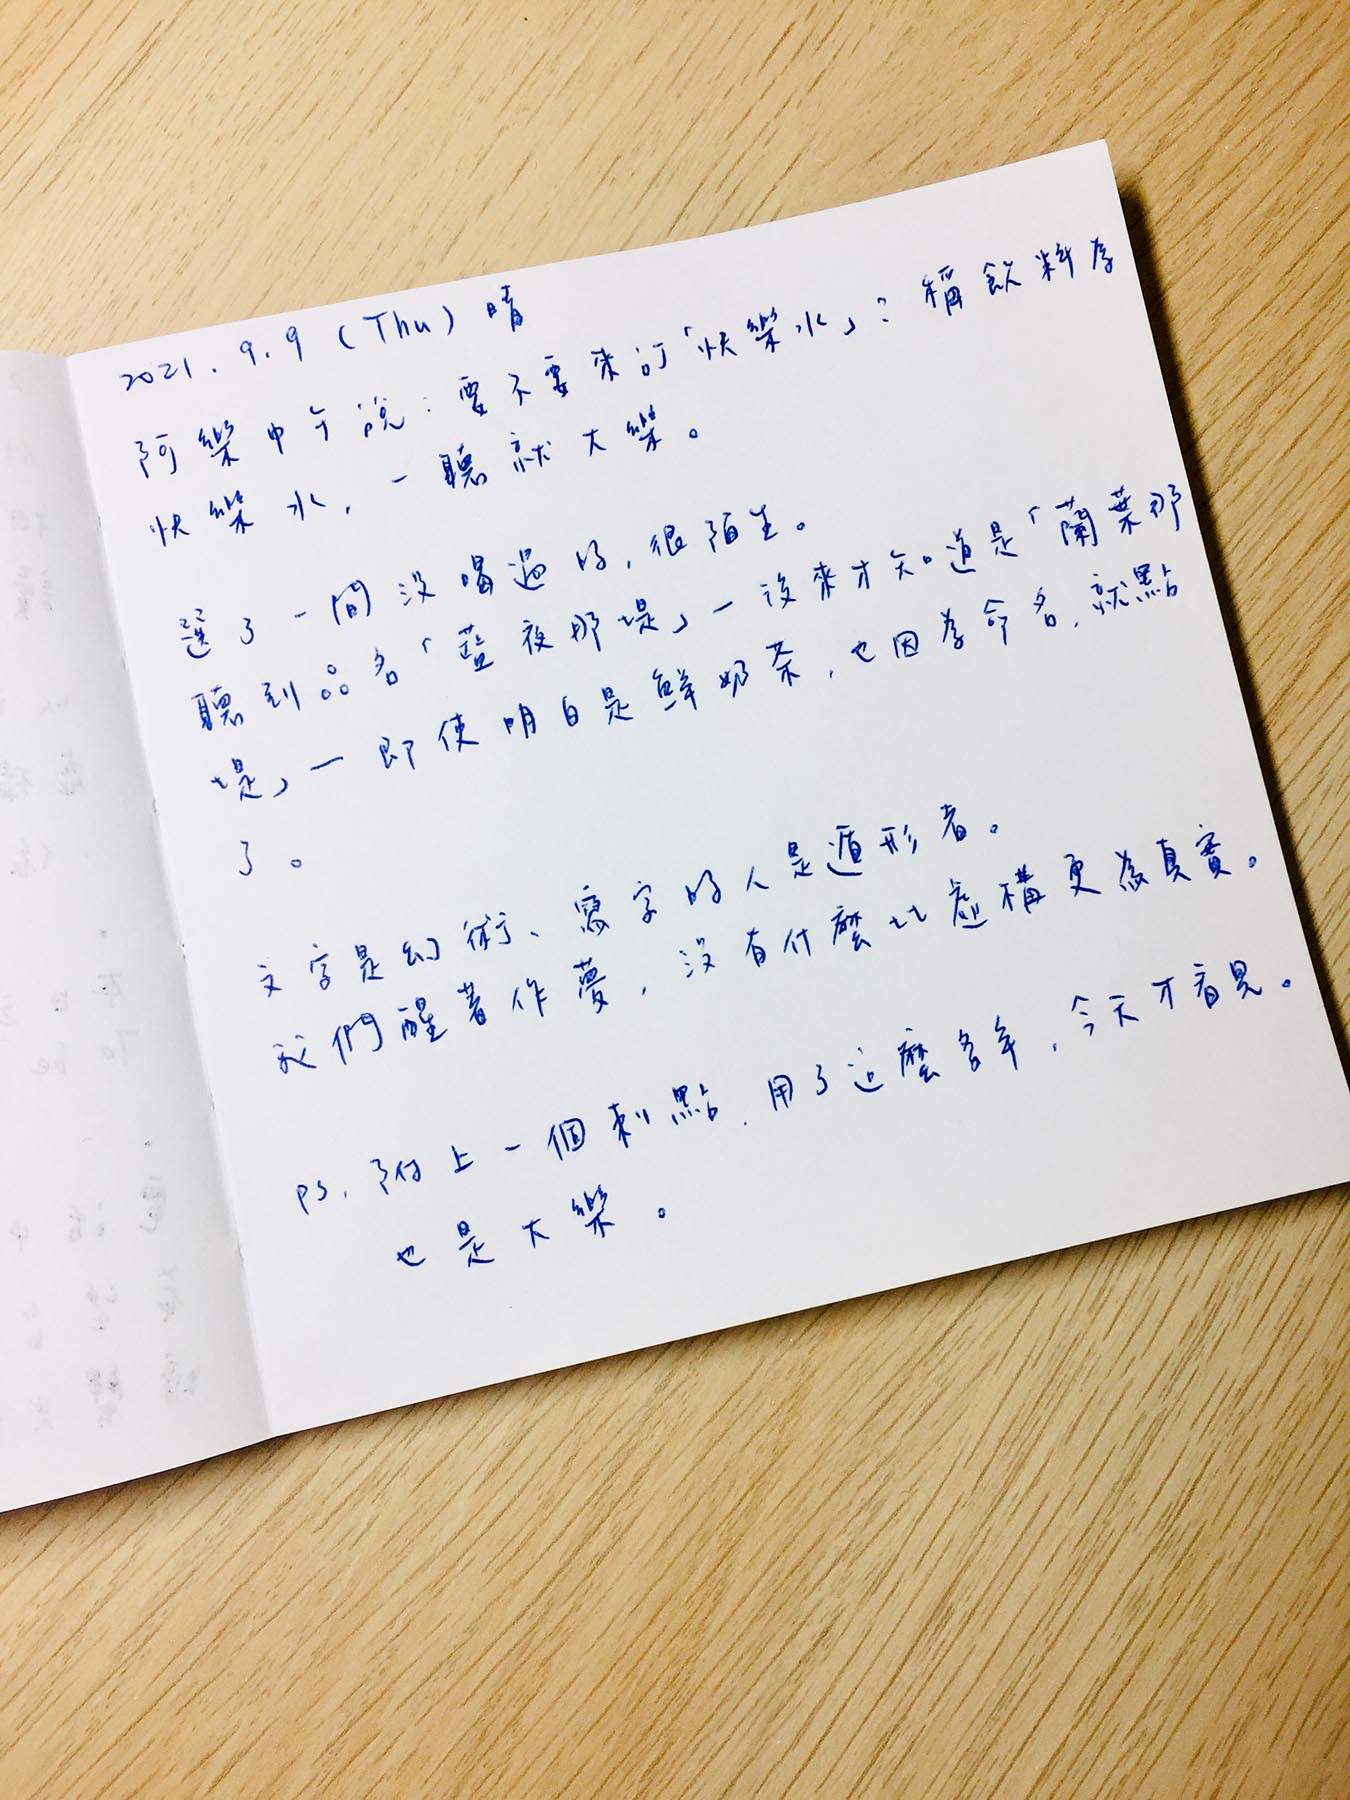 2021.9.9 (Thu) 晴
阿樂中午說：要不要來訂「快樂水」？稱飲料為
快樂水，一聽就大樂。
選了一間沒喝過的，很陌生。
聽到品名「藍夜那堤」—後來才知道是「蘭葉那
堤」—即使明白是鮮奶茶，也因為命名，就點
了。
文字是幻術、寫字的人是遁形者。
我們醒著作夢，沒有什麼比虛構更為真實。
ps. 附上一個刺點，用了這麼多年，今天才看見。
也是大樂。